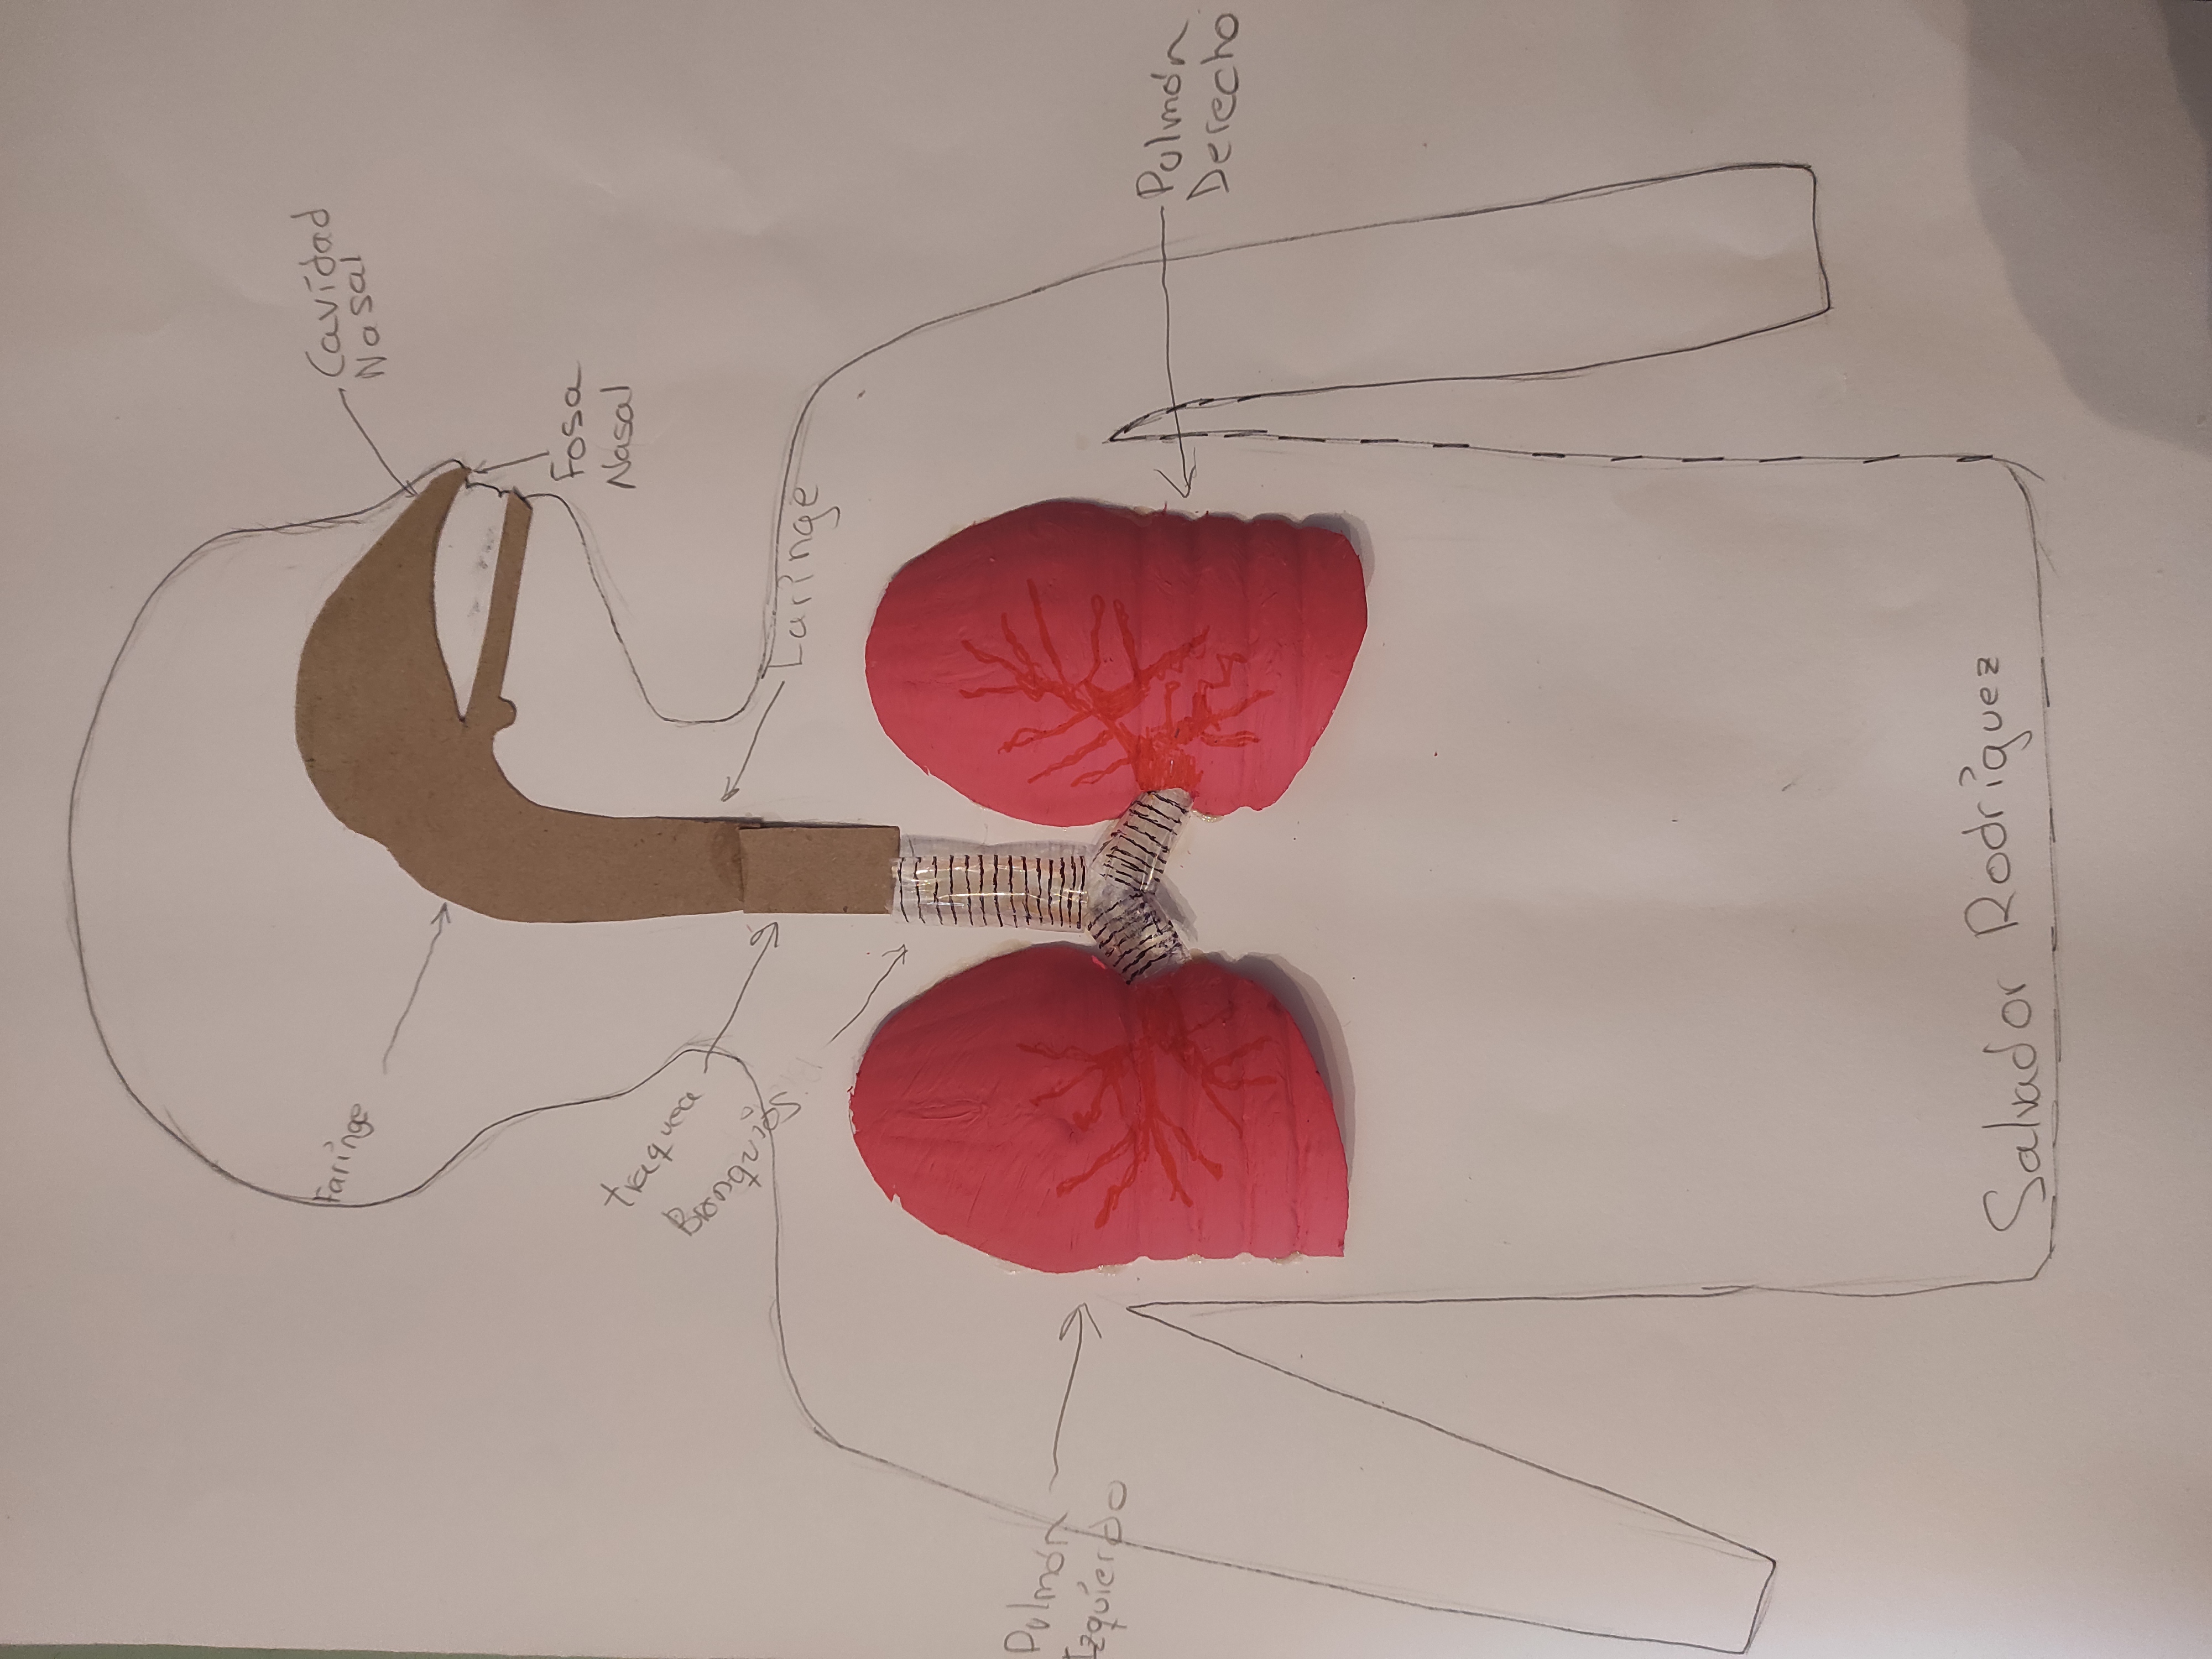 Cavidad
Nasal
Faringe
Fosa
Nasal
traquea
Bronquios
Laringe
Pulmón
Izquierdo
Pulmón
Derecho
Salvador Rodríguez